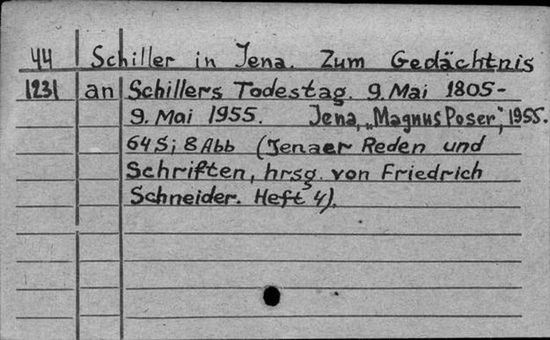 44 Schiller in Jena. Zum Gedächtnis
1231 an Schillers Todestag. 9. Mai 1805-
9. Mai 1955. Jena, „Magnus Poser", 1955.
64 S; 8 Abb (Jenaer Reden und
Schriften, hrsg. von Friedrich
Schneider. Heft 4).